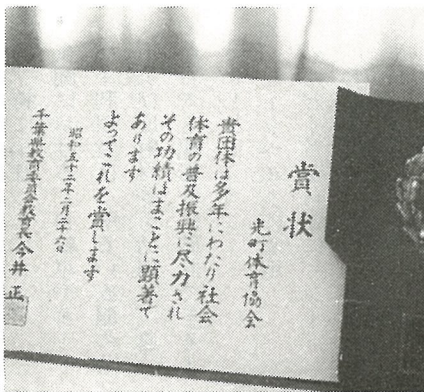 賞状
光町体育協会
貴団体は多年にわたり社会
体育の普及振興に尽力され
その功績はまことに顕著で
あります
よってこれを賞します
昭和五十二年二月二十六日
千葉県教育委員会教育長 今井 正